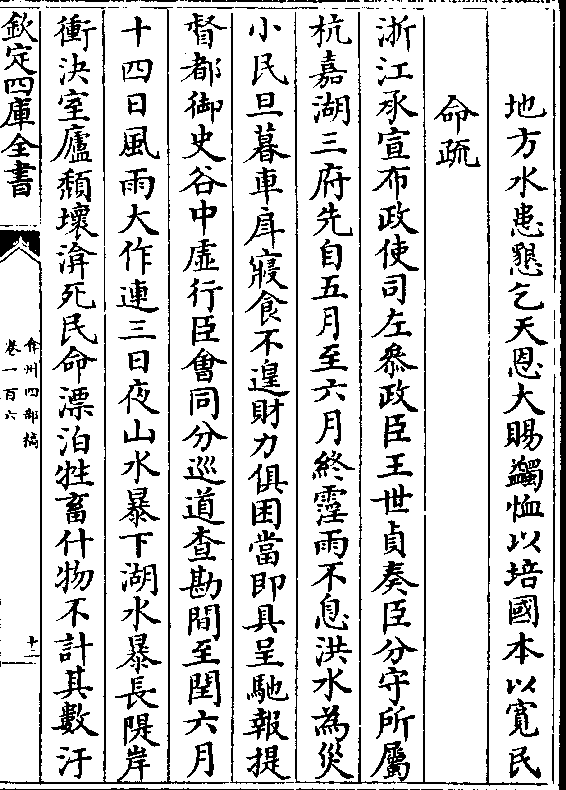 地方水患懇乞天恩大賜蠲恤以培國本以寬民
命疏
浙江承宣布政使司左叅政臣王世貞奏臣分守所屬
杭嘉湖三府先自五月至六月終霪雨不息洪水為災
小民旦暮車戽寢食不遑財力俱困當即具呈馳報提
督都御史谷中虛行臣會同分巡道查勘間至閏六月
十四日風雨大作連三日夜山水暴下湖水暴長隄岸
衝決室廬頽壞渰死民命漂泊牲畜什物不計其數汙
欽定四庫全書
弇州四部稿
卷一百六
十一